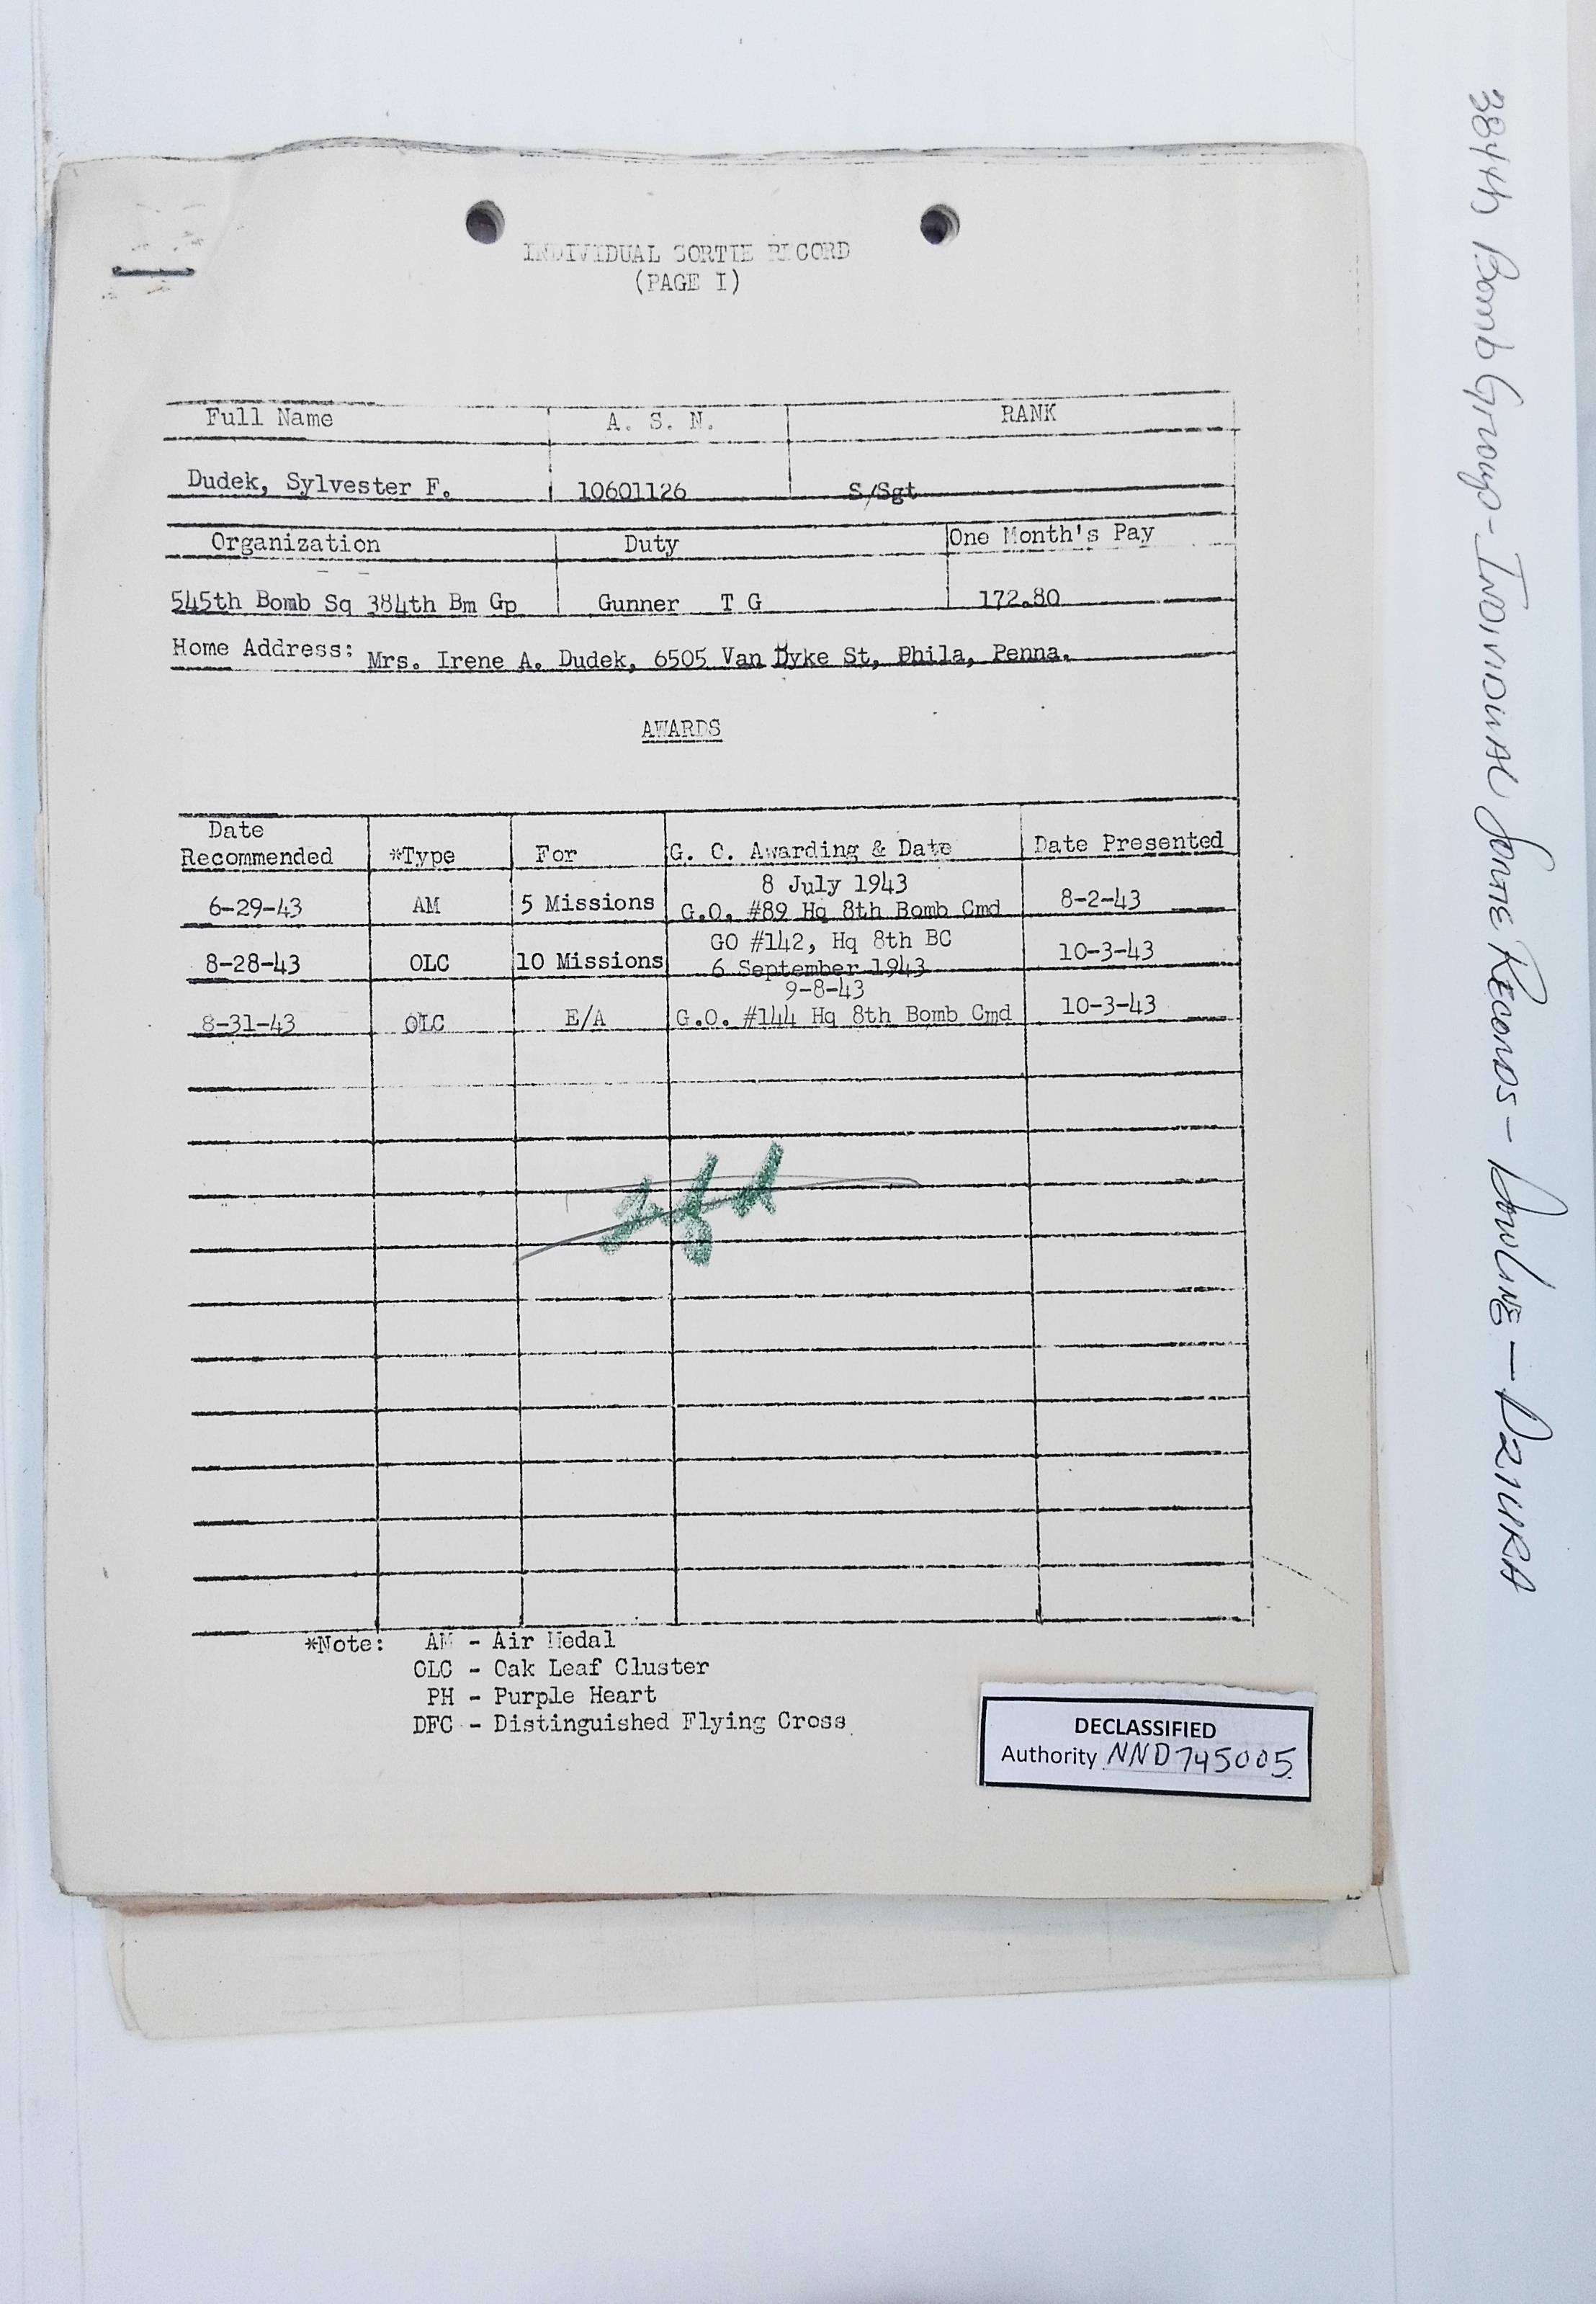 INDIVIDUAL SORTIE RECORD
(PAGE I)
Full Name A. S. N. RANK
Dudek, Sylvester F. 10601126 S/Sgt
Organization Duty One Month's Pay
545th Bomb Sq 384th Bm Gp Gunner T G 172.80
Home Address: Mrs. Irene A. Dudek, 6505 Van Dyke St, Phila, Penna.
AWARDS
Date
Recommended *Type For G. O. Awarding & Date Date Presented
8 July 1943
6-29-43 AM 5 Missions G.O. #89 Hq 8th Bomb Cmd 8-2-43
GO #142, Hq 8th BC
8-28-43 OLC 10 Missions 6 September 1943 10-3-43
9-8-43
8-31-43 OLC E/A G.O. #144 Hq 8th Bomb Cmd 10-3-43
*Note: AM - Air Medal
OLC - Oak Leaf Cluster
PH - Purple Heart
DFC - Distinguished Flying Cross
DECLASSIFIED
Authority NND 745005
384th Bomb Group - INDIVIDUAL SORTIE RECORDS - DOWLING - DZIURA